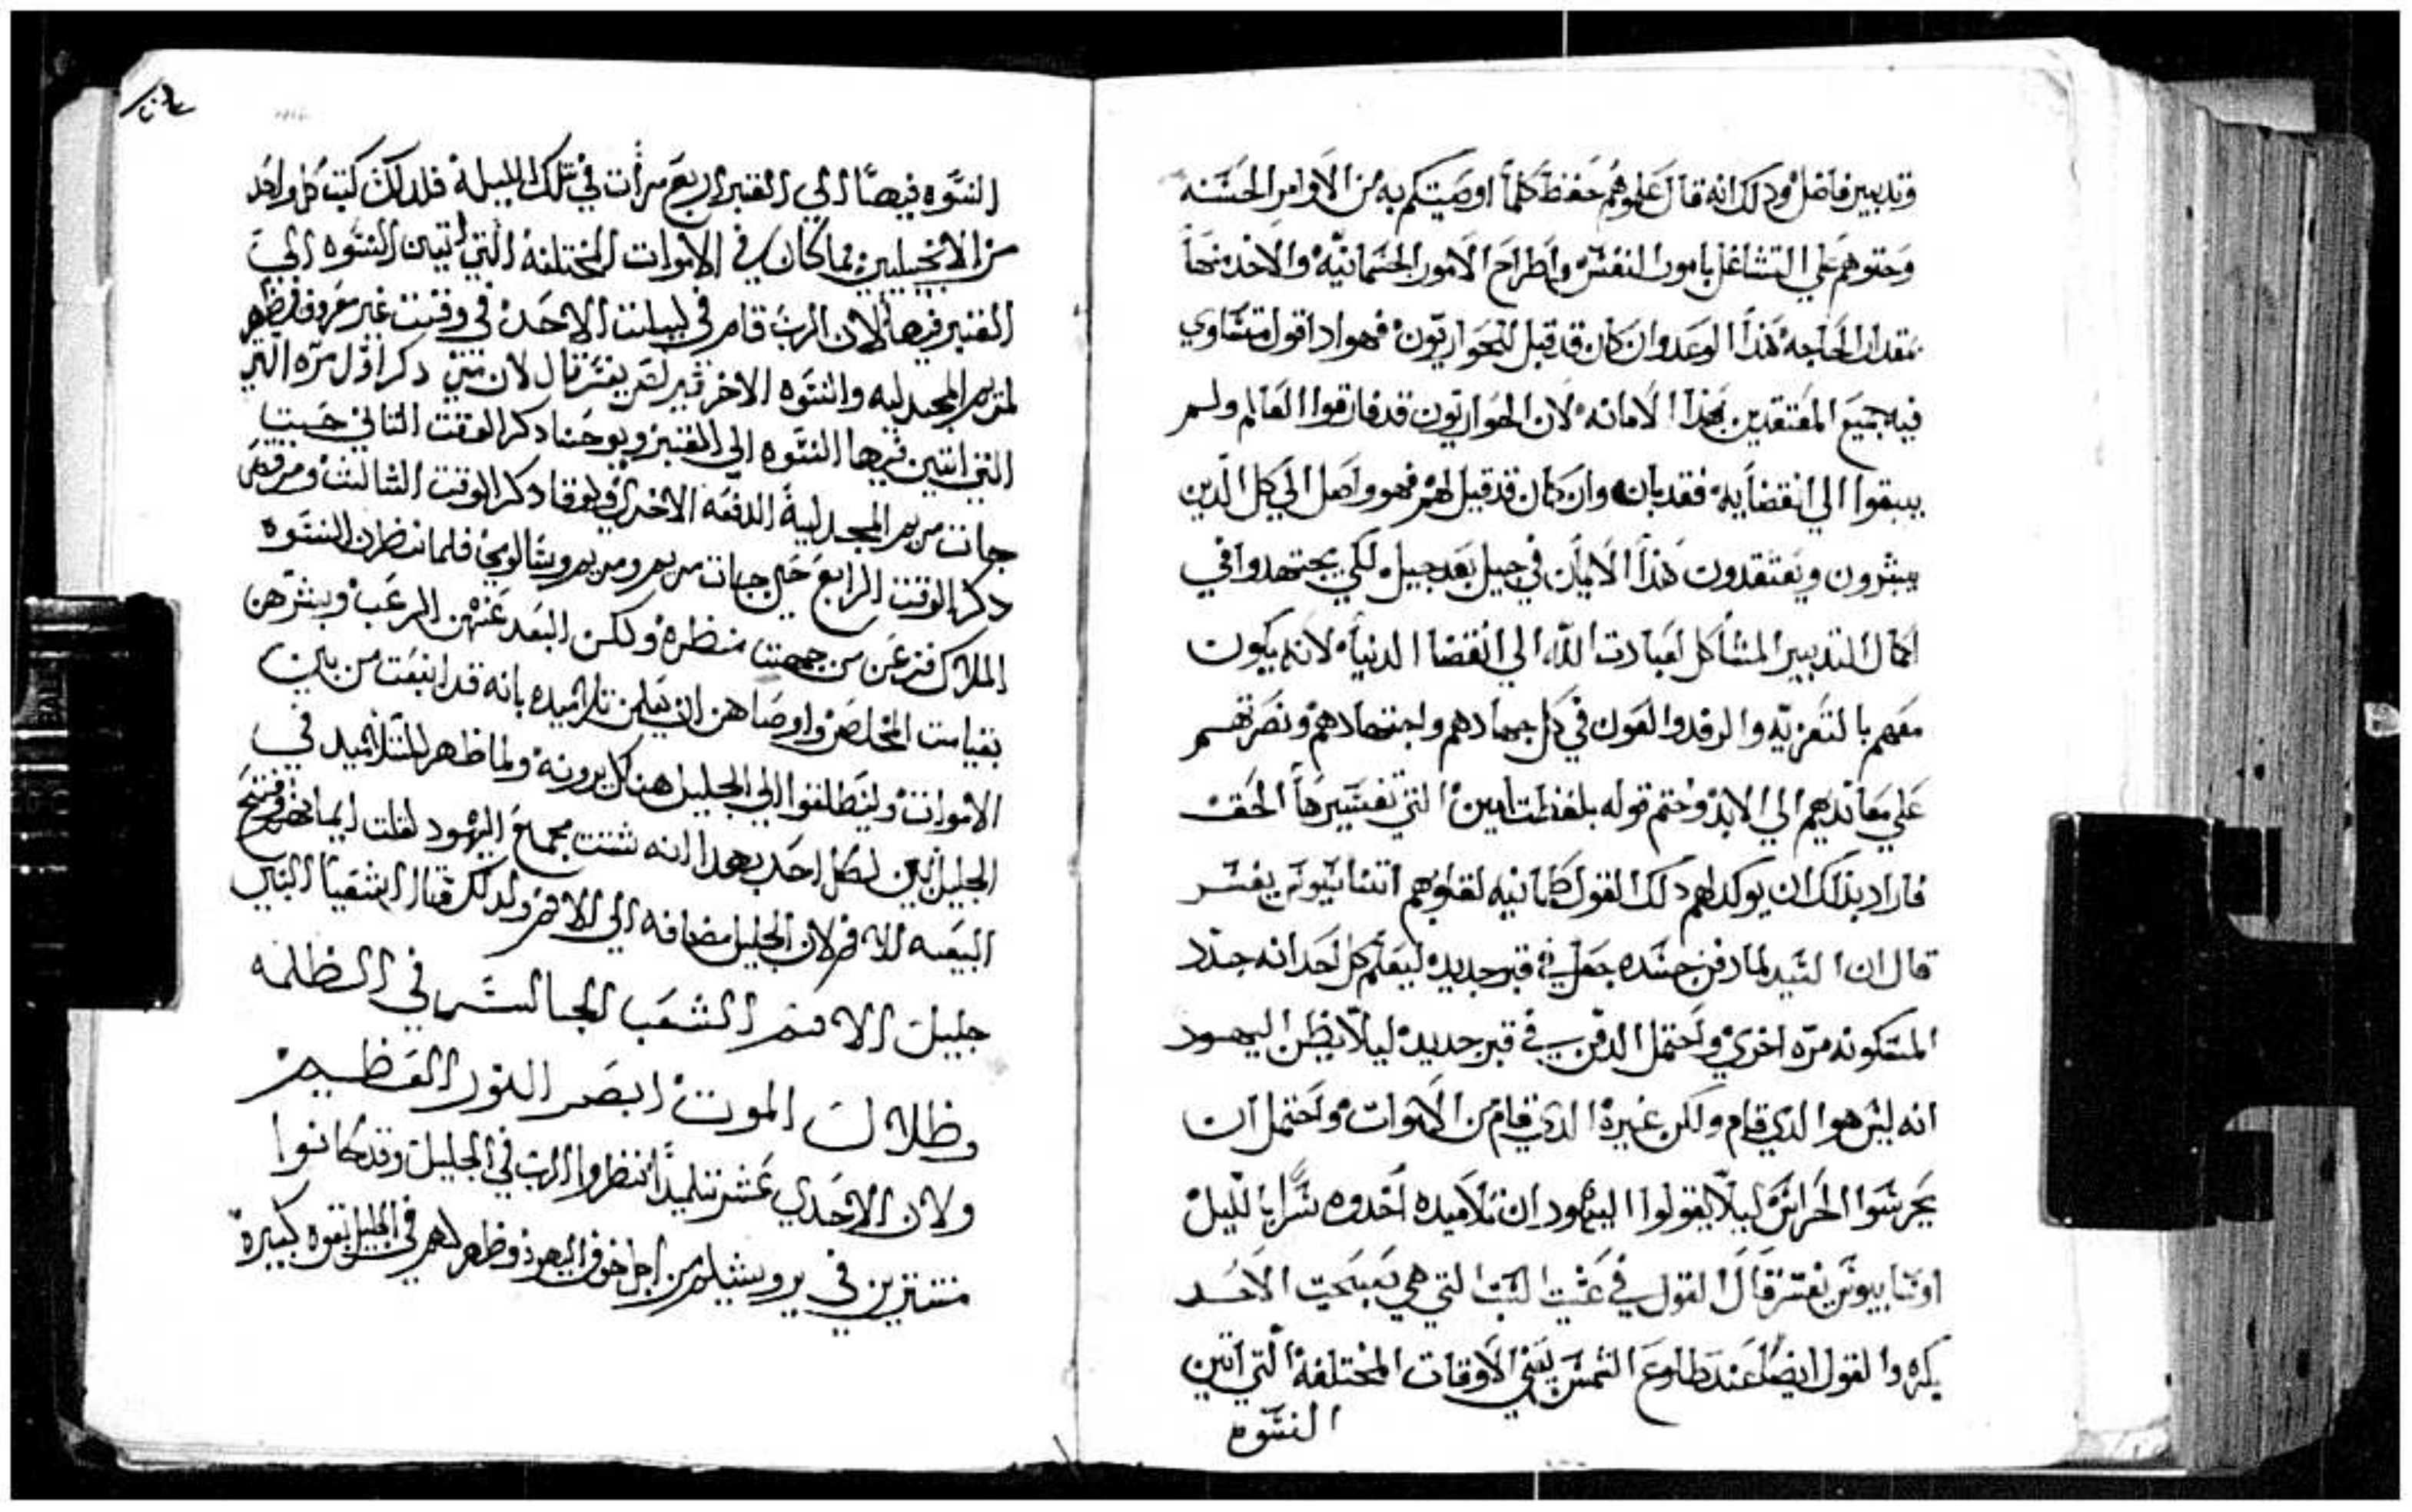 وتدبير فاضل ودلك انه قال علموهم حفظ كلما اوصيتكم به من الاوامر الحسنه
وحتوهم علي التشاغل بامور النفس واطراح الامور الجسمانيه والاخد منها
بمقدار الحاجه هدا الوعد وان كان قد قيل للحواريون فهو ادا قول متساوي
فيه جميع المعتقدين بهدا الامانه لان الحواريون قد فارقوا العالم ولم
يبقوا الي انقضايه فقد بان وان كان قد قيل لهم فهو واصل الي كل الدين
يبشرون ويعتقدون هدا الايمان في جيل بعد جيل لكي يجتهدوا في
اكمال التدبير المشاكل لعبادت الله الي انقضا الدنيا لانه يكون
معهم بالتعزيه والرفد والعون في كل جهادهم واجتهادهم ونصرتهم
علي معاندهم الي الابد وختم قوله بلفظت امين التي تفسيرها الحق
فاراد بدلك ان يوكد لهم دلك القول طمانيه لقلوبهم اتناسيوس يفسر
قال ان السيد لما دفن جسده جعل في قبر جديد ليعلم كل احد انه جدد
المسكونه مره اخري واحتمل الدفن في قبر جديد ليلا يظن اليهود
انه ليس هوا الدي قام ولكن غيره الدي قام من الاموات واحتمل ان
يحرسوا الحراس ليلا يقولوا اليهود ان تلاميده اخدوه سرا بالليل
اوسابيوس يفسر قال القول في عشيت السبت التي هي صبيحت الاحد
بكره والقول ايضا عند طلوع الشمس يعني الاوقات المختلفه التي اتين
النسوه
النسوه فيها الي القبر اربع مرات في تلك الليله فلدلك كتب كل واحد
من الانجيليين بما كان في الاوقات المختلفه التي اتين النسوه الي
القبر فيها لان الرب قام في ليلت الاحد في وقت غير معروف فظهر
لمريم المجدليه والنسوه الاخر يفسر قال لان متي دكر اول مره التي
التي اتين فيها النسوه الي القبر ويوحنا دكر الوقت التاني حيت
جات مريم المجدليه الدفعه الاخري ولوقا دكر الوقت التالت ومرقص
دكر الوقت الرابع حين جات مريم ومريم وسالومي فلما نظرن النسوه
الملاك فزعن من جهت منظره ولكن ابعد عنهن الرعب وبشرهن
بقيامت المخلص واوصاهن ان يعلمن تلاميده بانه قد انبعت من بين
الاموات ولينطلقوا الي الجليل هناك يرونه ولما ظهر للتلاميد في
الجليل تبين لكل احد بهدا انه شتت مجامع اليهود لقلت ايمانهم وفتح
البيعه للامم لان الجليل مضافه الي الامم ولدلك قال اشعيا النبي
جليل الامم الشعب الجالس في الظلمه
وظلال الموت ابصر النور العظيم
ولان الاحدي عشر تلميدا نظروا الرب في الجليل وقد كانوا
مستترين في يروشليم من اجل خوف اليهود وظهر لهم في الجليل بقوه كبيره